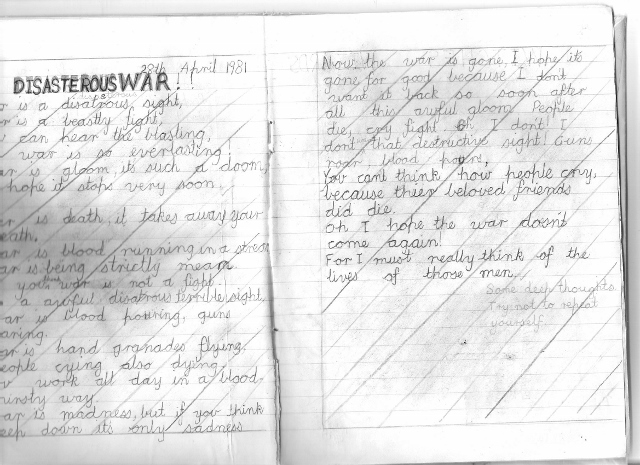 28th April 1981
DISASTEROUS WAR!!
r is a disatrous, sight,
r is a beastly fight,
can hear the blasting,
war is so everlasting!
ar is gloom, its such a doom,
hope it stops very soon.
er is death, it takes away your
eath.
ar is blood running in a stream
ar is being strictly mean
you war is not a fight.
a awful, disatrous terrible sight.
ar is blood pouring, guns
aring.
ar is hand granades flying.
eople cying also dying.
work all day in a blood-
irsty way.
ar is madness, but if you think
eep down its only sadness
Now the war is gone, I hope its
gone for good because I dont
want it back so soon after
all this awful gloom. People
die, cry fight. Oh I don't! I
dont that destructive sight! Guns
roar, blood pours,
You cant think how people cry,
because thier beloved friends
did die.
Oh I hope the war doesn't
come again!
For I must really think of the
lives of those men.
Some deep thoughts.
Try not to repeat
yourself.